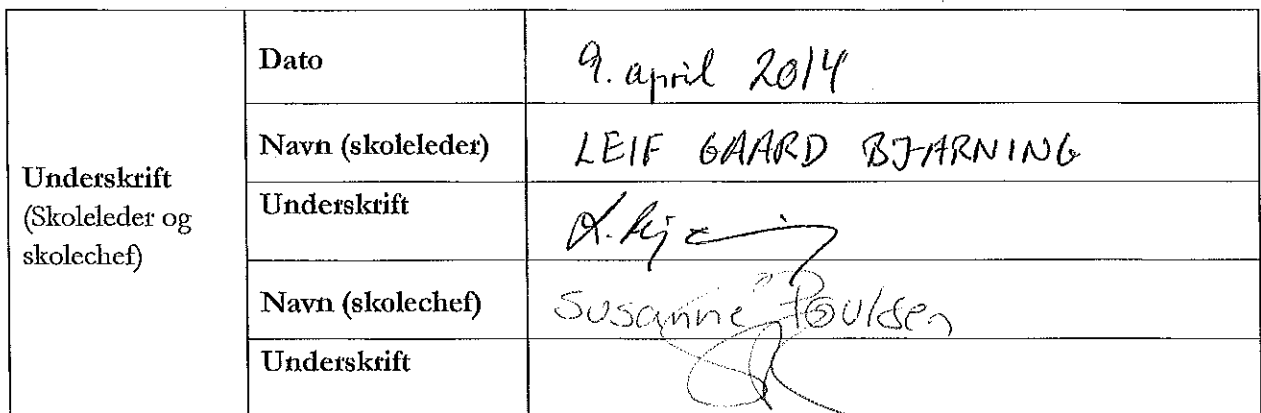 Underskrift
(Skoleleder og
skolechef)
Dato
9. april 2014
Navn (skoleleder)
LEIF GAARD BJARNING
Underskrift
Navn (skolechef)
Susanne Poulsen
Underskrift